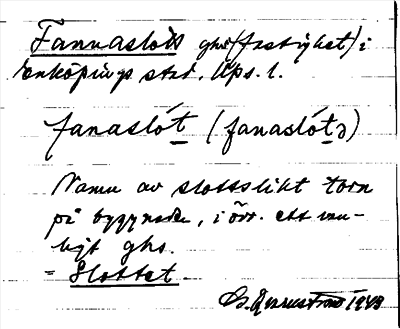 Fannaslott ghs (fastighet) i
Enköpings stad, Ups. l.
fanaslót (fanaslótə)
Namn av slottslikt torn
på byggnaden, i övr. ett van-
ligt ghs.
= Slottet.
1943